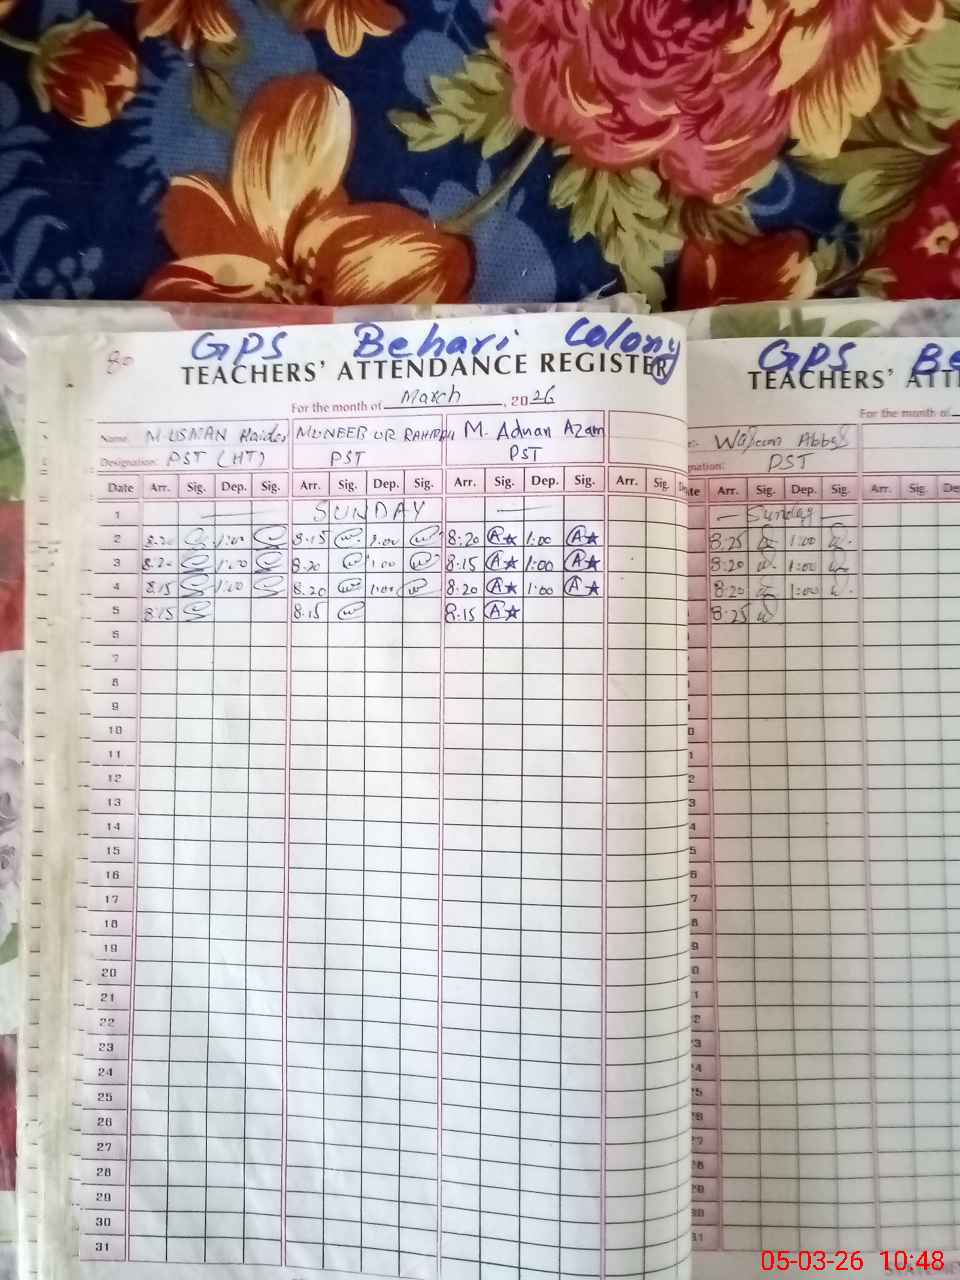 80
GPS Behari Colony
TEACHERS' ATTENDANCE REGISTER
For the month of March, 2026
Name: M. USMAN Haider MUNEEB UR RAHMAN M. Adnan Azam
Designation: PST (HT) PST PST
Date Arr. Sig. Dep. Sig. Arr. Sig. Dep. Sig. Arr. Sig. Dep. Sig. Arr. Sig.
1 SUNDAY
2 8:20 1:00 8:15 1:00 8:20 A★ 1:00 A★
3 8:20 1:00 8:20 1:00 8:15 A★ 1:00 A★
4 8:15 1:00 8:20 1:00 8:20 A★ 1:00 A★
5 8:15 8:15 8:15 A★
6
7
8
9
10
11
12
13
14
15
16
17
18
19
20
21
22
23
24
25
26
27
28
29
30
31
GPS Be
TEACHERS' ATT
For the month of
Waseem Abbas
gnation: PST
Date Arr. Sig. Dep. Sig. Arr. Sig. De
Sunday
8:25 1:00
8:20 1:00
8:20 1:00
8:25
05-03-26 10:48